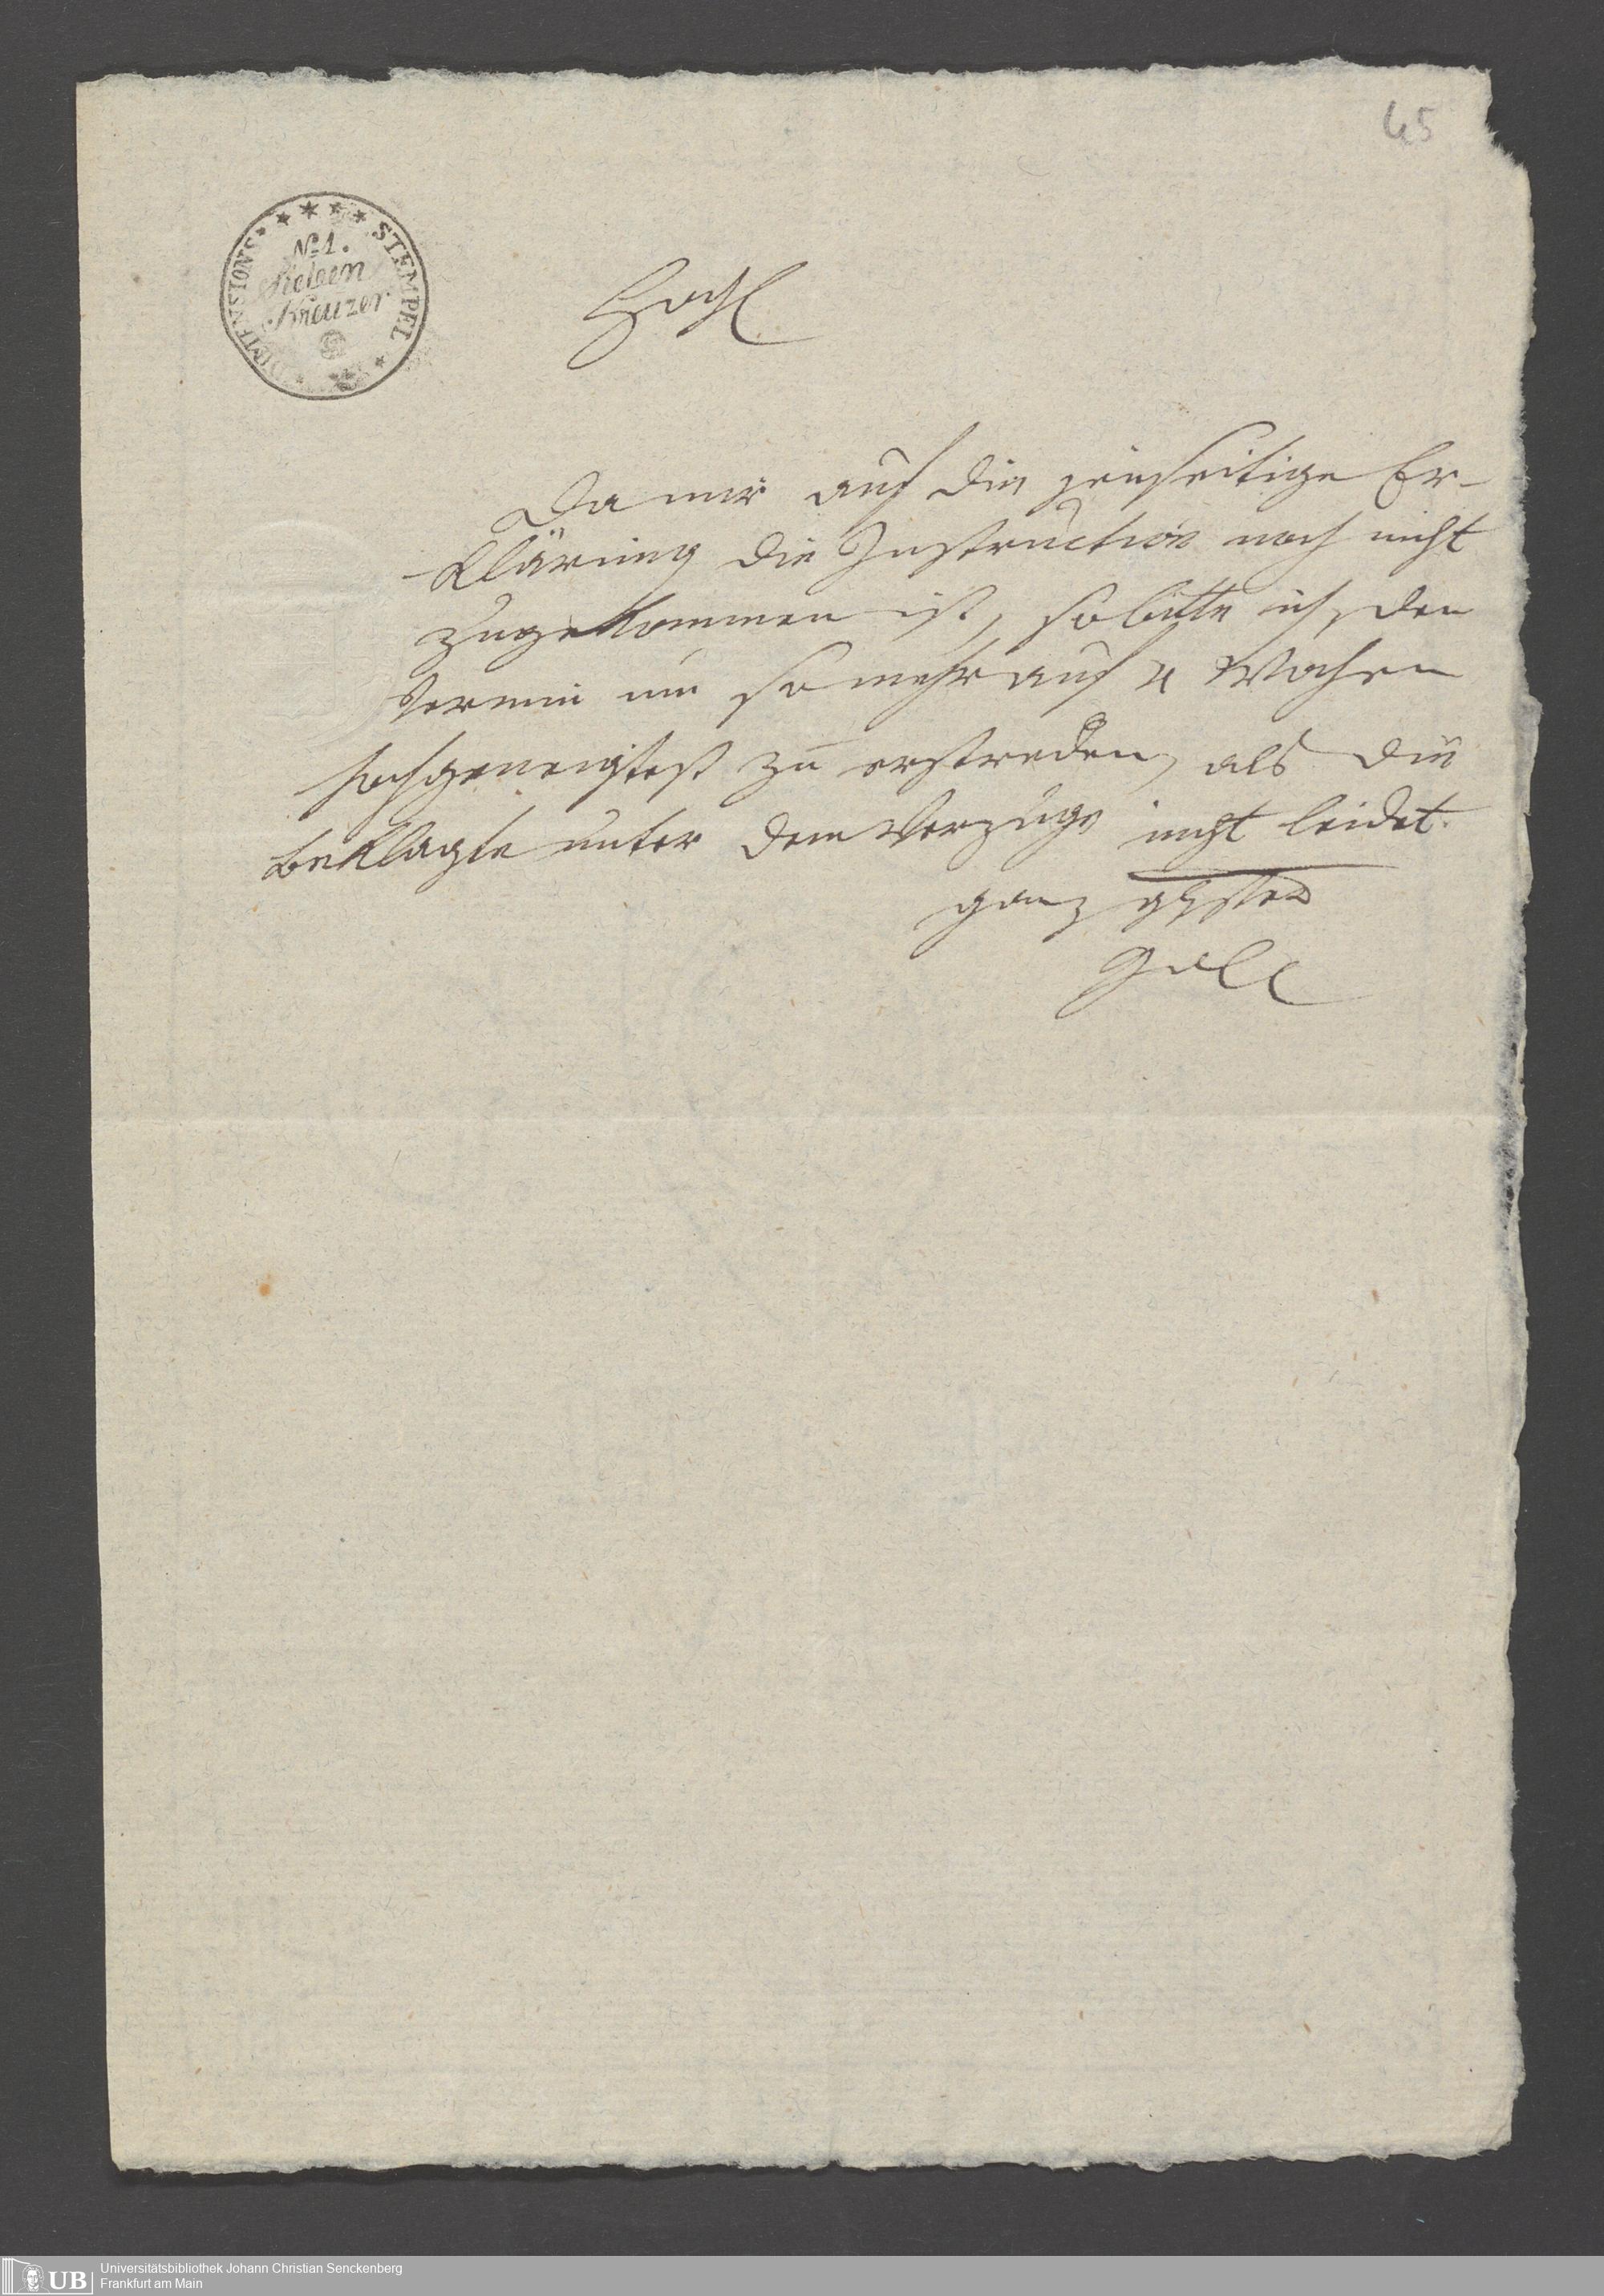 45
DIMENSIONS STEMPEL
No 1.
Sieben
Kreuzer
Da mir auf die jenseitige Er-
klärung die Instruction noch nicht
zugekommen ist, so bitte ich, den
Termin um so mehr auf 4 Wochen
hochgeneigtest zu erstrecken, als die
Beklagte unter dem Verzuge nicht leidet.
ganz
Goll
UB
Universitätsbibliothek Johann Christian Senckenberg
Frankfurt am Main